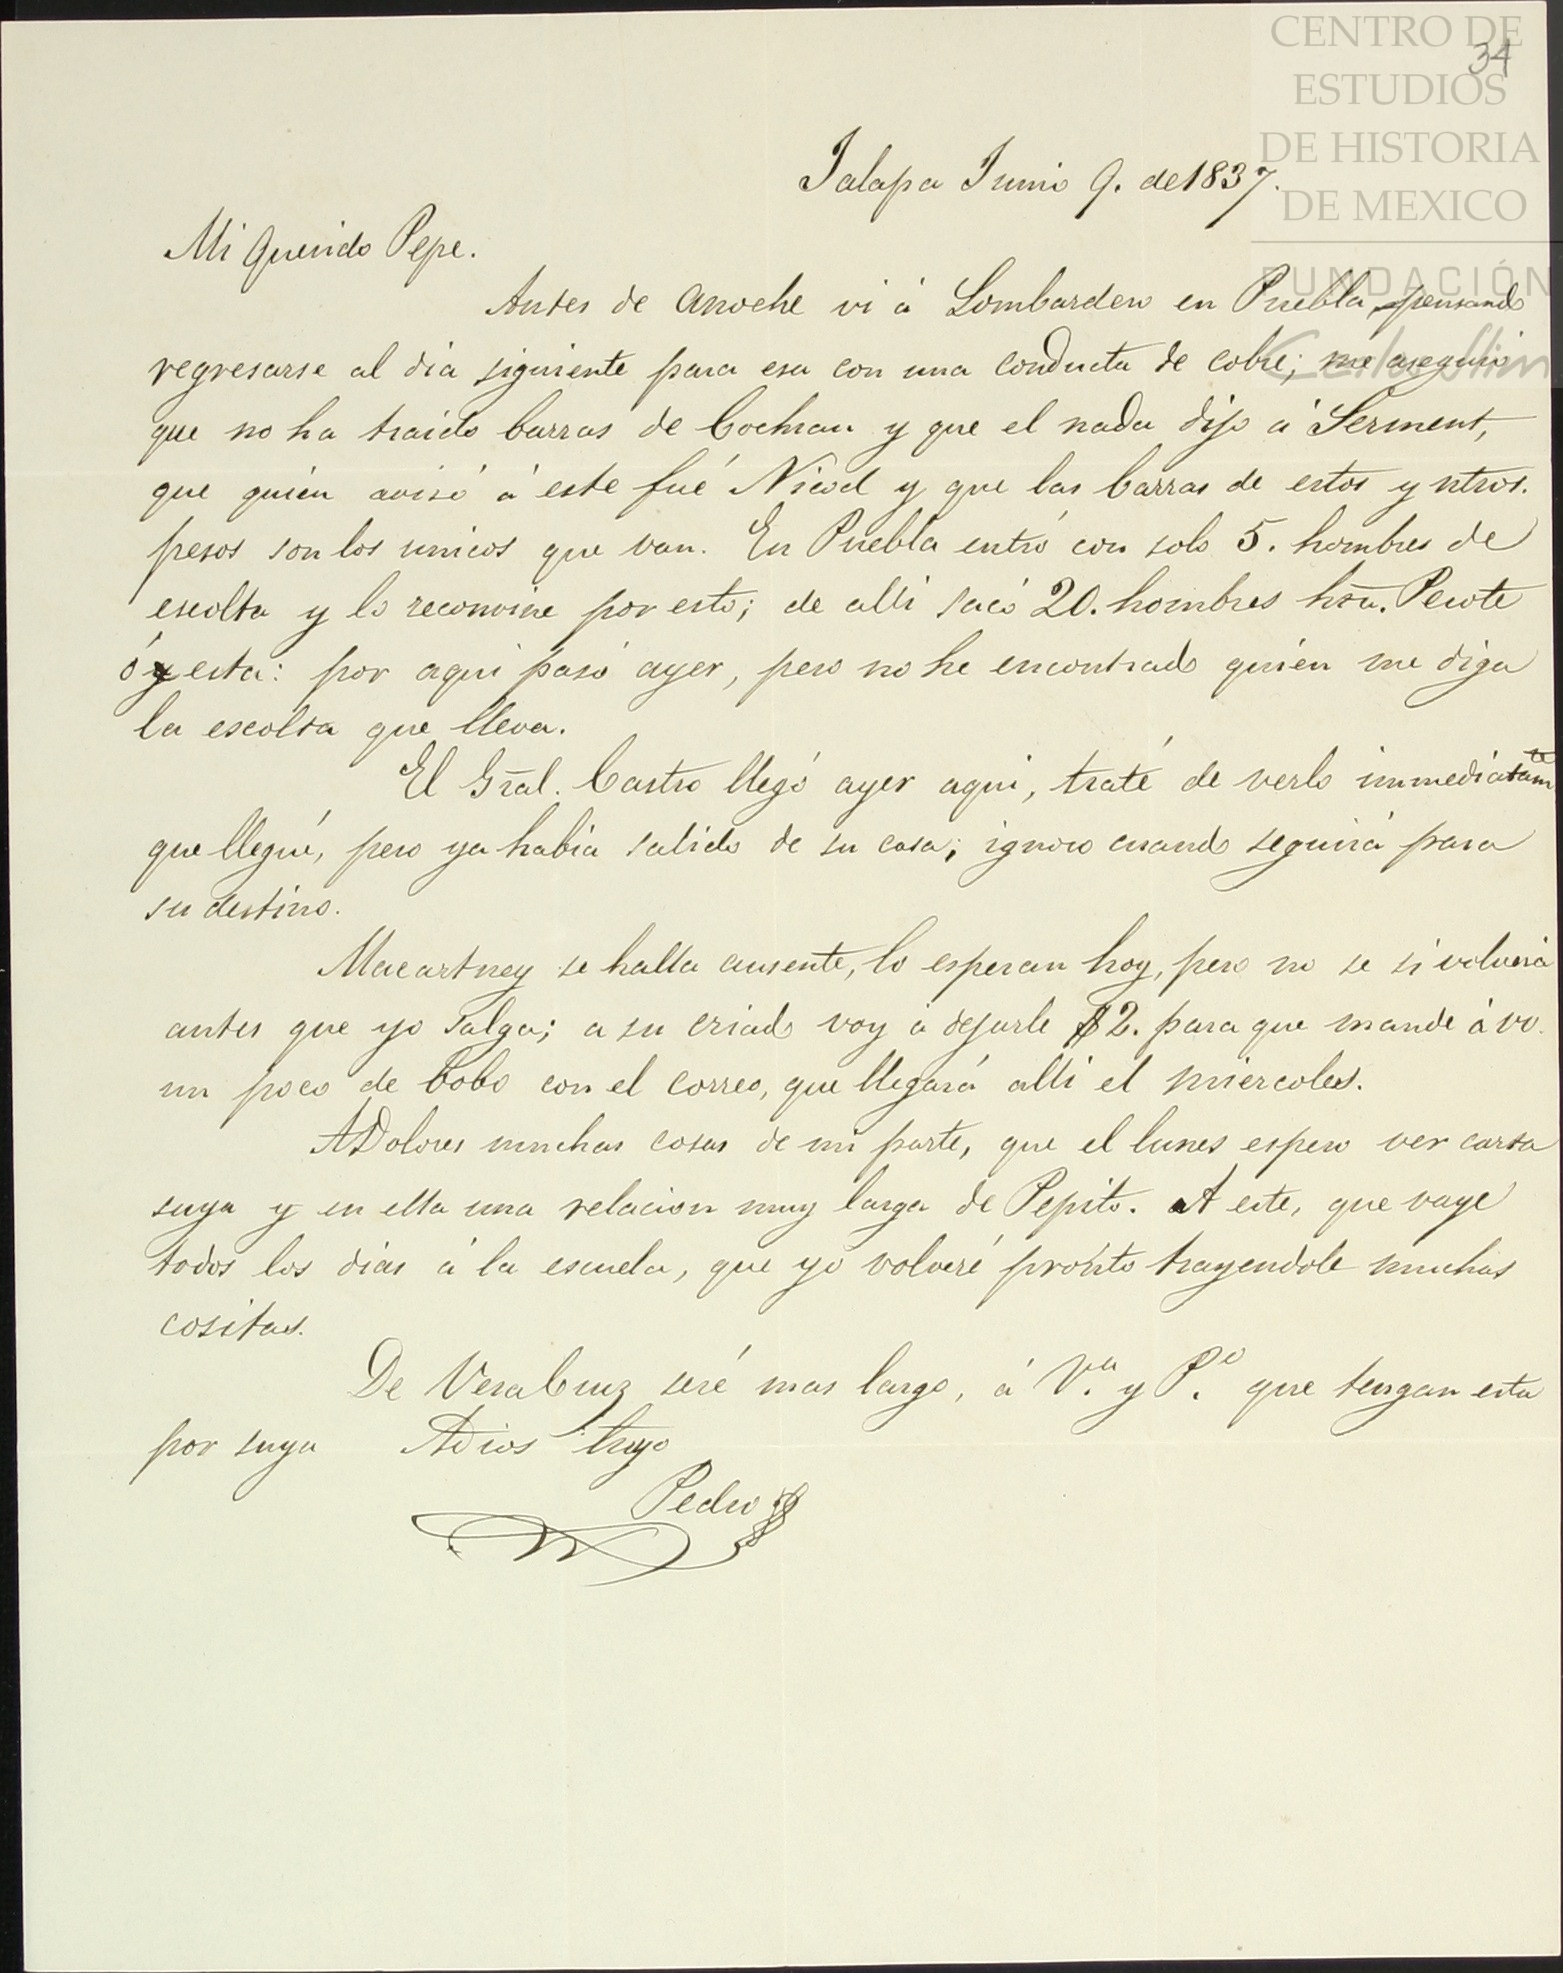 CENTRO DE
ESTUDIOS
DE HISTORIA
DE MEXICO
FUNDACIÓN
Carlos Slim
34
Jalapa Junio 9. de 1837.
Mi Querido Pepe.
Antes de anoche vi á Lombardero en Puebla, pensando
regresarse al dia siguiente para esa con una conducta de cobre; me aseguró
que no ha traido barras de Cochran y que el nada dijo á Serment,
que quién avisó á este fué Nicod y que las barras de estos y ntros.
pesos son los unicos que van. En Puebla entró con solo 5. hombres de
escolta y lo reconvine por esto; de alli sacó 20. hombres hta. Perote
ó y esta: por aqui pasó ayer, pero no he encontrado quién me diga
la escolta que lleva.
El Gral. Castro llegó ayer aqui, traté de verlo immediatamte
que llegué, pero ya habia salido de su casa; ignoro cuando seguirá para
su destino.
Macartney se halla ausente, lo esperan hoy, pero no se si volverá
antes que yo salga; a su criado voy á dejarle $2. para que mande á vv.
un poco de bobo con el correo, que llegará alli el miercoles.
A Dolores muchas cosas de mi parte, que el lunes espero ver carta
suya y en ella una relacion muy larga de Pepito. A este, que vaye
todos los dias á la escuela, que yo volveré pronto trayendole muchas
cositas.
De VeraCruz seré mas largo, á V.a y P.o que tengan esta
por suya Adios tuyo
Pedro